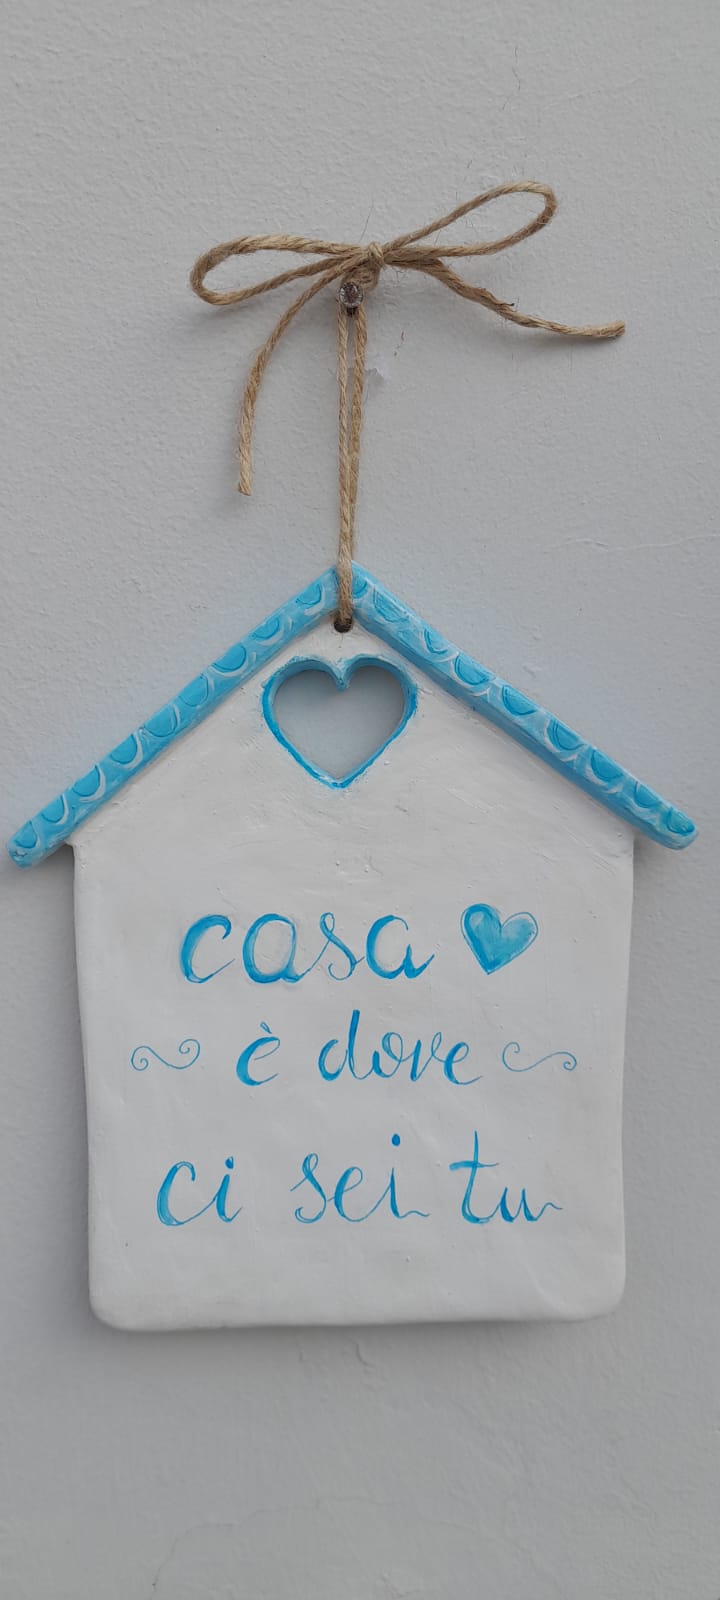 casa
è dove
ci sei tu